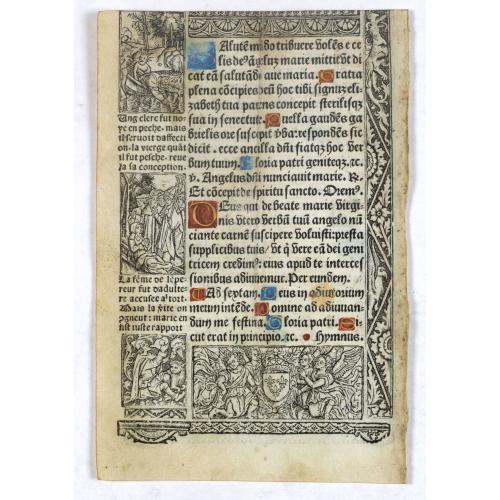 Alute mūdo tribuere volēs e ce
lis deꝰ āgeluʒ marie mittit ut di
cat eā salutādi aue maria. Grata
plena cōcipies deū hoc tibi signuʒ eli
zabeth tua parens concepit sterilisqʒ
sua in senectute. Puella gaudēs ga
brielis ore suscipit vba: respondēs sic
dicit. ecce ancilla dn̄i fiatqʒ hoc ver
bum tuum. Gloria patri genitoqʒ. ꝛc.
ꝟ. Angelus dn̄i nunciauit marie. ℟.
Et cōcepit de spiritu sancto. Oremꝰ.
DEus qui de beate marie virgi
nis vtero verbū tuū angelo nū
ciante carnē suscipere voluisti: presta
supplicibus tuis / vt q̇ vere eā dei geni
tricem credimꝰ: eius apud te interces
sionibus adiuuemur. Per eundem.
Ad sextam. Deus in adiutorium
meum intēde. Domine ad adiuuan
dum me festina. Gloria patri. Si
cut erat in principio. ꝛc. Hymnus.
Ung clerc fut no
ye en peche. mais
il seruoit daffecti
on. la vierge quāt
il fut pesche. reue
la sa conception.
La fēme de lēpe
reur fut dadulte
re accusee a tort.
Mais la fite on
pgneut: marie en
fist iuste rapport